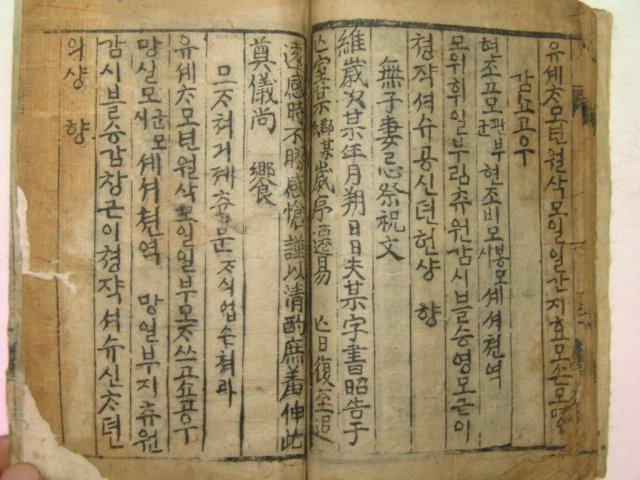 유셰ᄎᆞ모년월삭모일일간지효모손모명
감쇼고우
현조고모관부군현조비모봉모시셰셔쳔역
모위휘일부림츄원감시블승영모근이
쳥쟉셔슈공신뎐헌샹향
無子妻忌祭祝文
維歲次某年月朔日日夫某字書昭告于
亡室某鄕某歲序遷易亡日復至追
遠感時不勝感愴謹以清酌庶羞伸此
奠儀尚饗
므ᄌᆞ쳐긔졔츅문ᄌᆞ식업ᄉᆞᆫ쳐라
유셰ᄎᆞ모년월삭모일일부모ᄌᆞ쓰고쇼고우
망실모군모시셰셔쳔역망일부지츄원
감시블승감창근이쳥쟉셔슈신ᄎᆞ뎐
의샹향